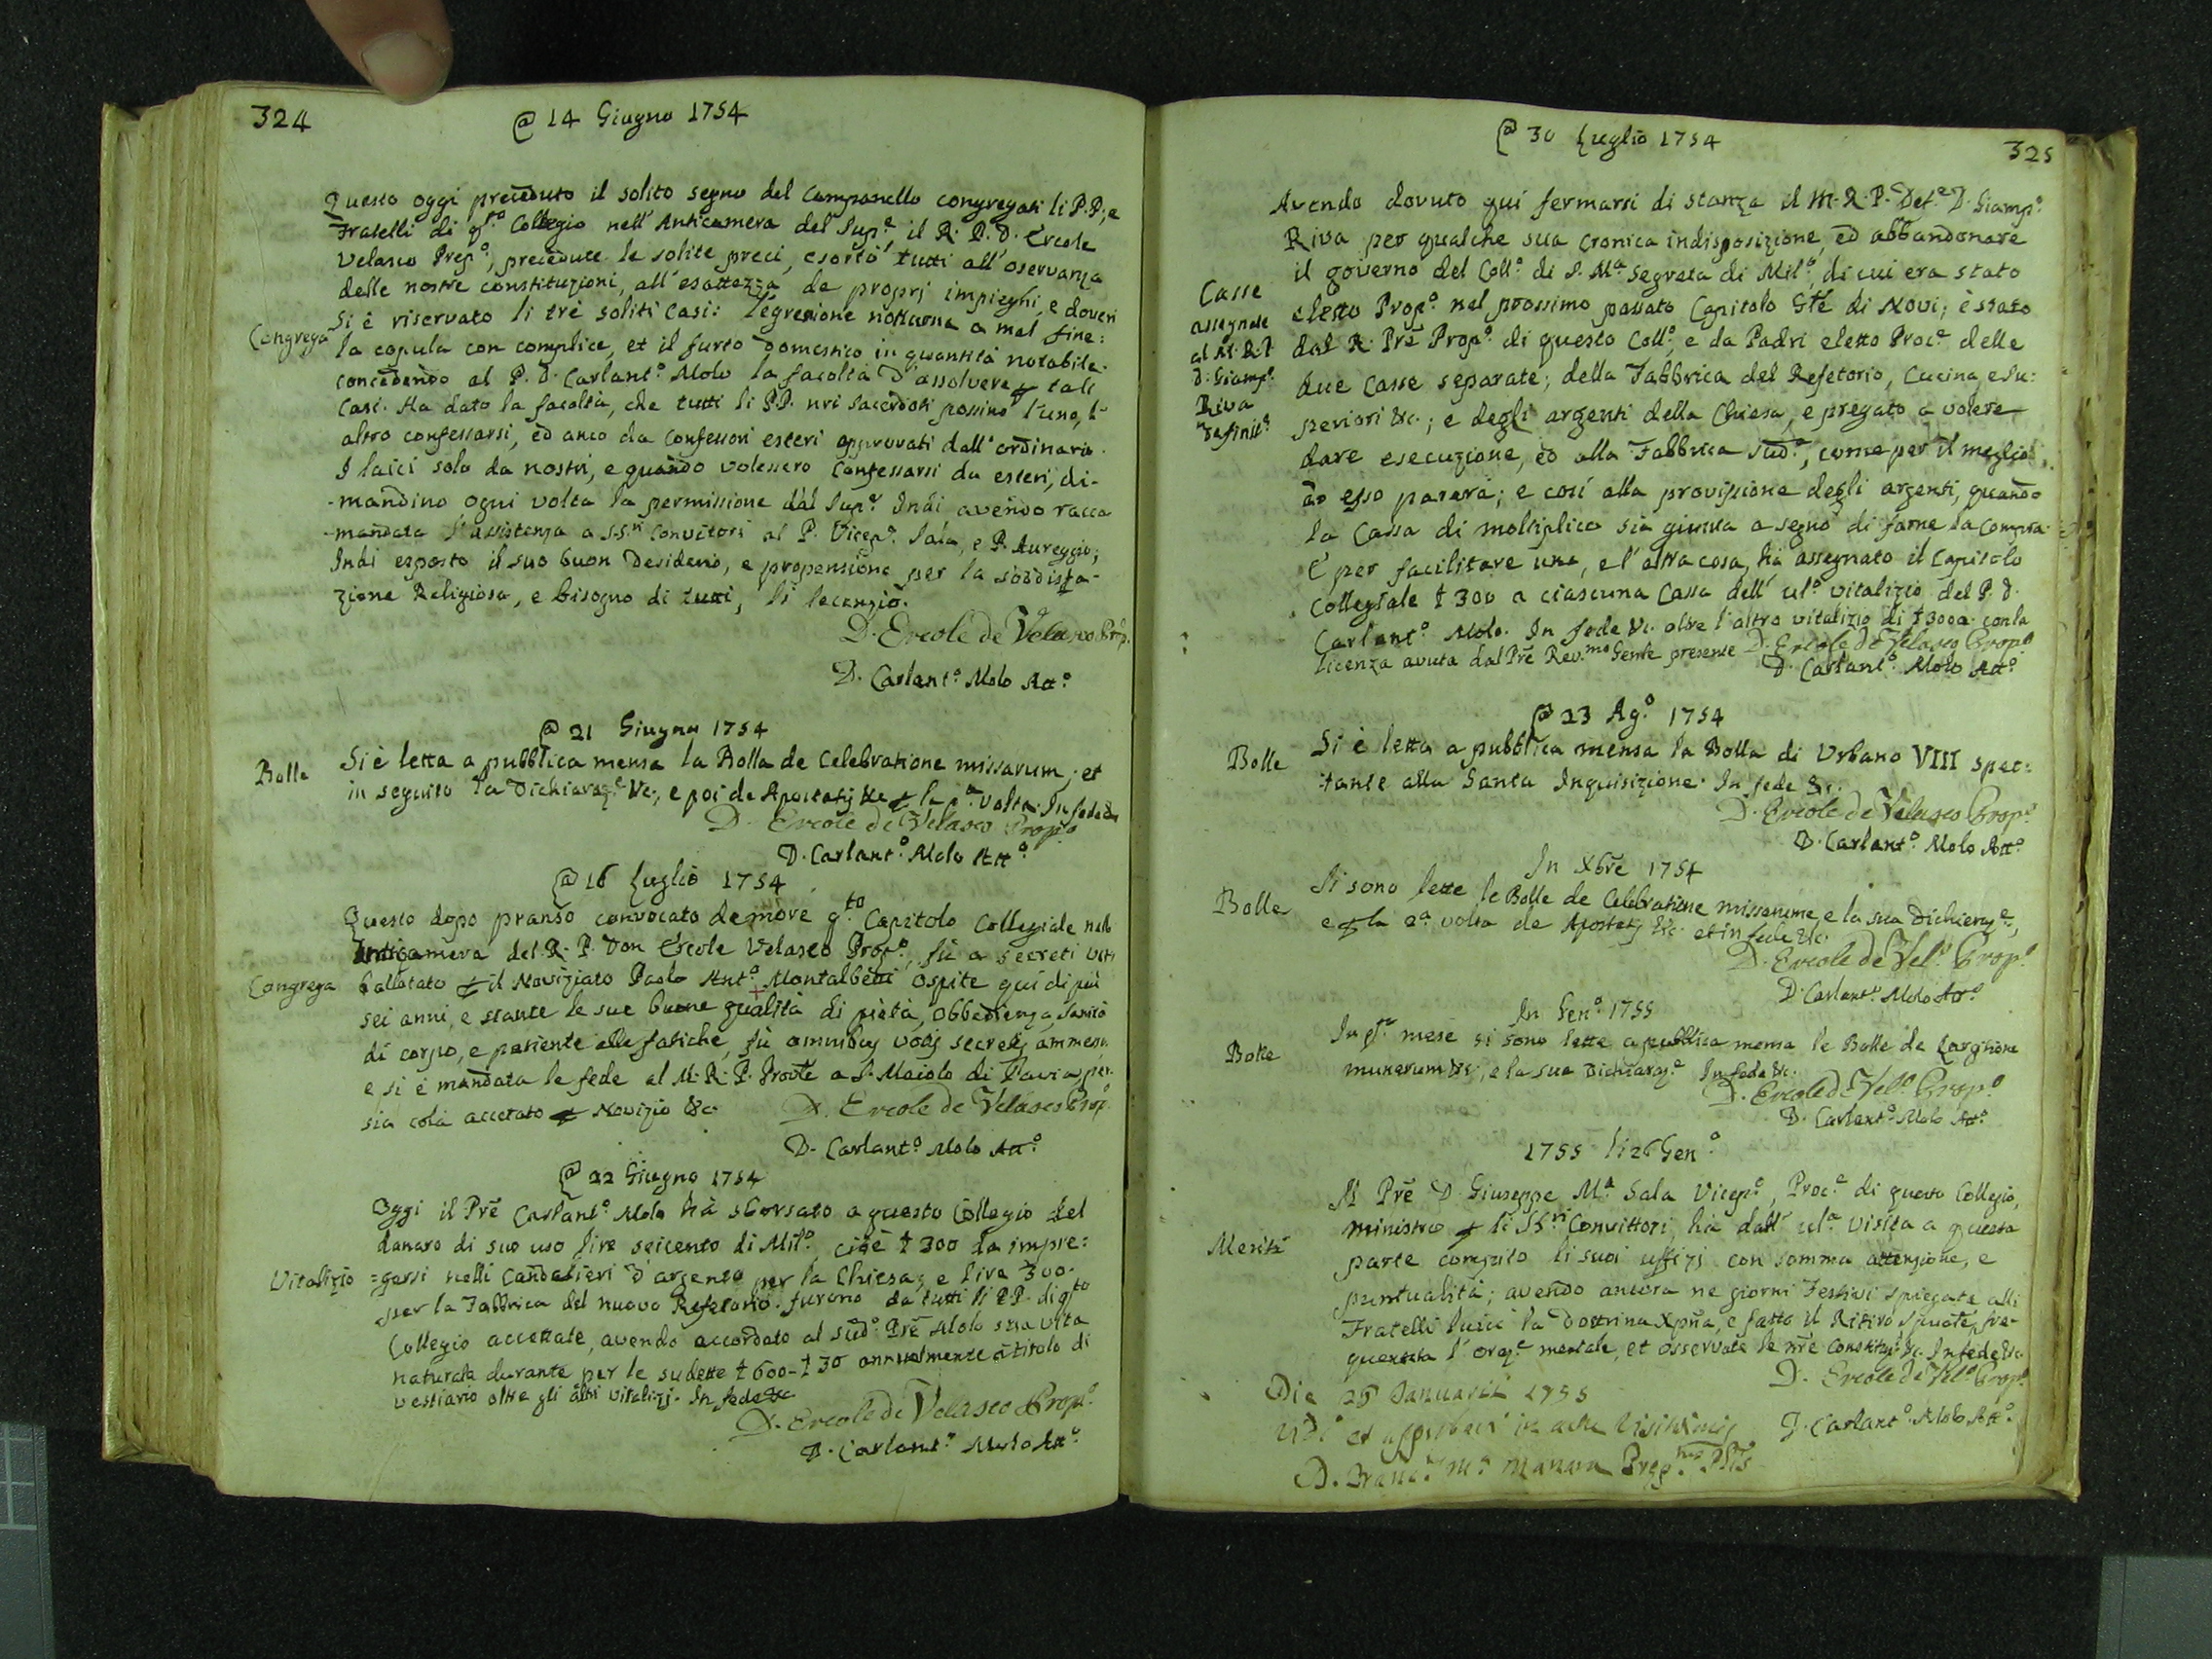 324
@ 14 Giugno 1754
Questo oggi preceduto il solito segno del Campanello congregati li P.P., e
Fratelli di q.to Collegio nell' Anticamera del Sup.e il R. P. D. Ercole
Velasco Prep.o, precedute le solite preci, esortò tutti all' oservanza
delle nostre constituzioni, all' esattezza de proprj impieghi, e doveri
Si è riservato li trè soliti Casi: l'egressione notturna a mal fine:
Congrega
la copula con complice, et il furto Domestico in quantità notabile.
concedendo al P. D. Carlant.o Molo la facoltà d'assolvere p tali
Casi. Ha dato la facoltà, che tutti li PP. nri Sacerdoti possino l'uno, l'
altro confessarsi, ed anco da Confessori esteri approvati dall' ordinario.
I laici solo da nostri, e quando volessero Confessarsi da esteri, di-
-mandino ogni volta la permissione dal Sup.e Indi avendo racco
-mandata l'assistenza a SS.ri Convitori al P. Vicep.o Sala, e P. Aureggio;
Indi esposto il suo buon Desiderio, e propensione per la soddisfa-
zione Religiosa, e bisogno di tutti, li licenziò.
D. Ercole de Velasco Prop.
D. Carlant.o Molo Att.o
@ 21 Giugno 1754
Bolle
Si è letta a pubblica mensa la Bolla de Celebratione missarum, et
in seguito la Dichiaraz.e &c., e poi de Apostatis &c p la p.a volta. In fede &c
D. Ercole de Velasco Prop.o
D. Carlant.o Molo Att.o
@ 16 Luglio 1754
Questo dopo pranso convocato de more q.to Capitolo Collegiale nella
Anticamera del R. P. Don Ercole Velasco Prop.o, fù a secreti voti
Congrega
ballotato p il Noviziato Paolo Ant.o Montalbetti ospite quì di più
sei anni, e stante le sue buone qualità di pietà, obbedienza, sanità
di corpo, e patiente alle fatiche, fù omnibus votis secretis ammesso.
e si è mandata le fede al M. R. P. Provle a S. Maiolo di Pavia, per
sia colà accetato p Novizio &c.
D. Ercole de Velasco Prop.o
D. Carlant.o Molo Att.o
@ 22 Giugno 1754
Oggi il Prē Carlant.o Molo hà sborsato a questo Collegio del
danaro di suo uso lire seicento di Mil.o, cioè ₤ 300 da impie:
Vitalizio
=garsi nelli Candelieri d'argento per la Chiesa, e lire 300.
per la Fabbrica del nuovo Refetorio. furono da tutti li PP. di q.to
Collegio accettate, avendo accordato al sud.o Prē Molo sua vita
naturale durante per le sudette ₤ 600 - ₤ 30 annualmente a titolo di
vestiario oltre gli altri vitalizj. In fede &c
D. Ercole de Velasco Prop.o
D. Carlant.o Molo Att.o
325
@ 30 Luglio 1754
Avendo dovuto quì fermarsi di stanza il M. R. P. Def.e D. Giamp.o
Riva per qualche sua cronica indisposizione, ed abbandonare
il governo del Coll.o di S. M.a Segreta di Mil.o, di cui era stato
Casse
assegnate
al M. R. P
D. Giamp.o
Riva
Definit.e
eletto Prop.o nel prossimo passato Capitolo Gle di Novi; è stato
dal R. Prē Prop.o di questo Coll.o, e da Padri eletto Proc.e delle
due Casse separate; della Fabbrica del Refetorio, Cucina, e Su:
periori &c.; e degli argenti della Chiesa, e pregato a volere
dare esecuzione, ed alla Fabbrica sud.a, come per il meglio
ad esso parerà; e così alla provissione degli argenti, quando
la Cassa di moltiplico sia giunta a segno di farne la compra.
E per facilitare una, e l'altra cosa, hà assegnato il Capitolo
Collegiale ₤ 300 a ciascuna Cassa dell' ul.o vitalizio del P. D.
Carlant.o Molo. In fede &c. oltre l'altro vitalizio di ₤ 3000. con la
licenza avuta dal Prē Rev.mo Genle presente
D. Ercole de Velasco Prop.o
D. Carlant.o Molo Att.o
@ 23 Ag.o 1754
Bolle
Si è letta a pubblica mensa la Bolla di Urbano VIII spet:
tante alla Santa Inquisizione. In fede &c.
D. Ercole de Velasco Prop.o
D. Carlant.o Molo Att.o
In Xbre 1754
Bolle
Si sono lette le Bolle de Celebratione missarum, e la sua Dichiaraz.e,
e p la 2a volta de Apostatis &c. et in fede &c.
D. Ercole de Vel.o Prop.o
D. Carlant.o Molo Att.o
In Gen.o 1755
Bolle
In q.to mese si sono lette a pubblica mensa le Bolle de Largitione
munerum &c., e la sua Dichiaraz.e In fede &c.
D. Ercole de Vel.o Prop.o
D. Carlant.o Molo Att.o
1755 li 26 Gen.o
Il Prē D. Giuseppe M.a Sala Vicep.o, Proc.e di questo Collegio,
ministro p li SS.ri Convittori, hà dall' ul.a visita a questa
Meriti
parte compito li suoi uffizj con somma attenzione, e
puntualità; avendo ancora ne giorni Festivi spiegata alli
Fratelli laici la Dottrina Xpna, e fatto il Ritiro spuale, fre-
quentata l'oraz.e mentale, et osservate le nrē Constituz.i &c. In fede &c.
D. Ercole de Vel.o Prop.o
D. Carlant.o Molo Att.o
Die 26 Januarii 1755
Vidi et approbavi in actu Visitationis
D. Franc. M.a Manara Prep.tus Plis